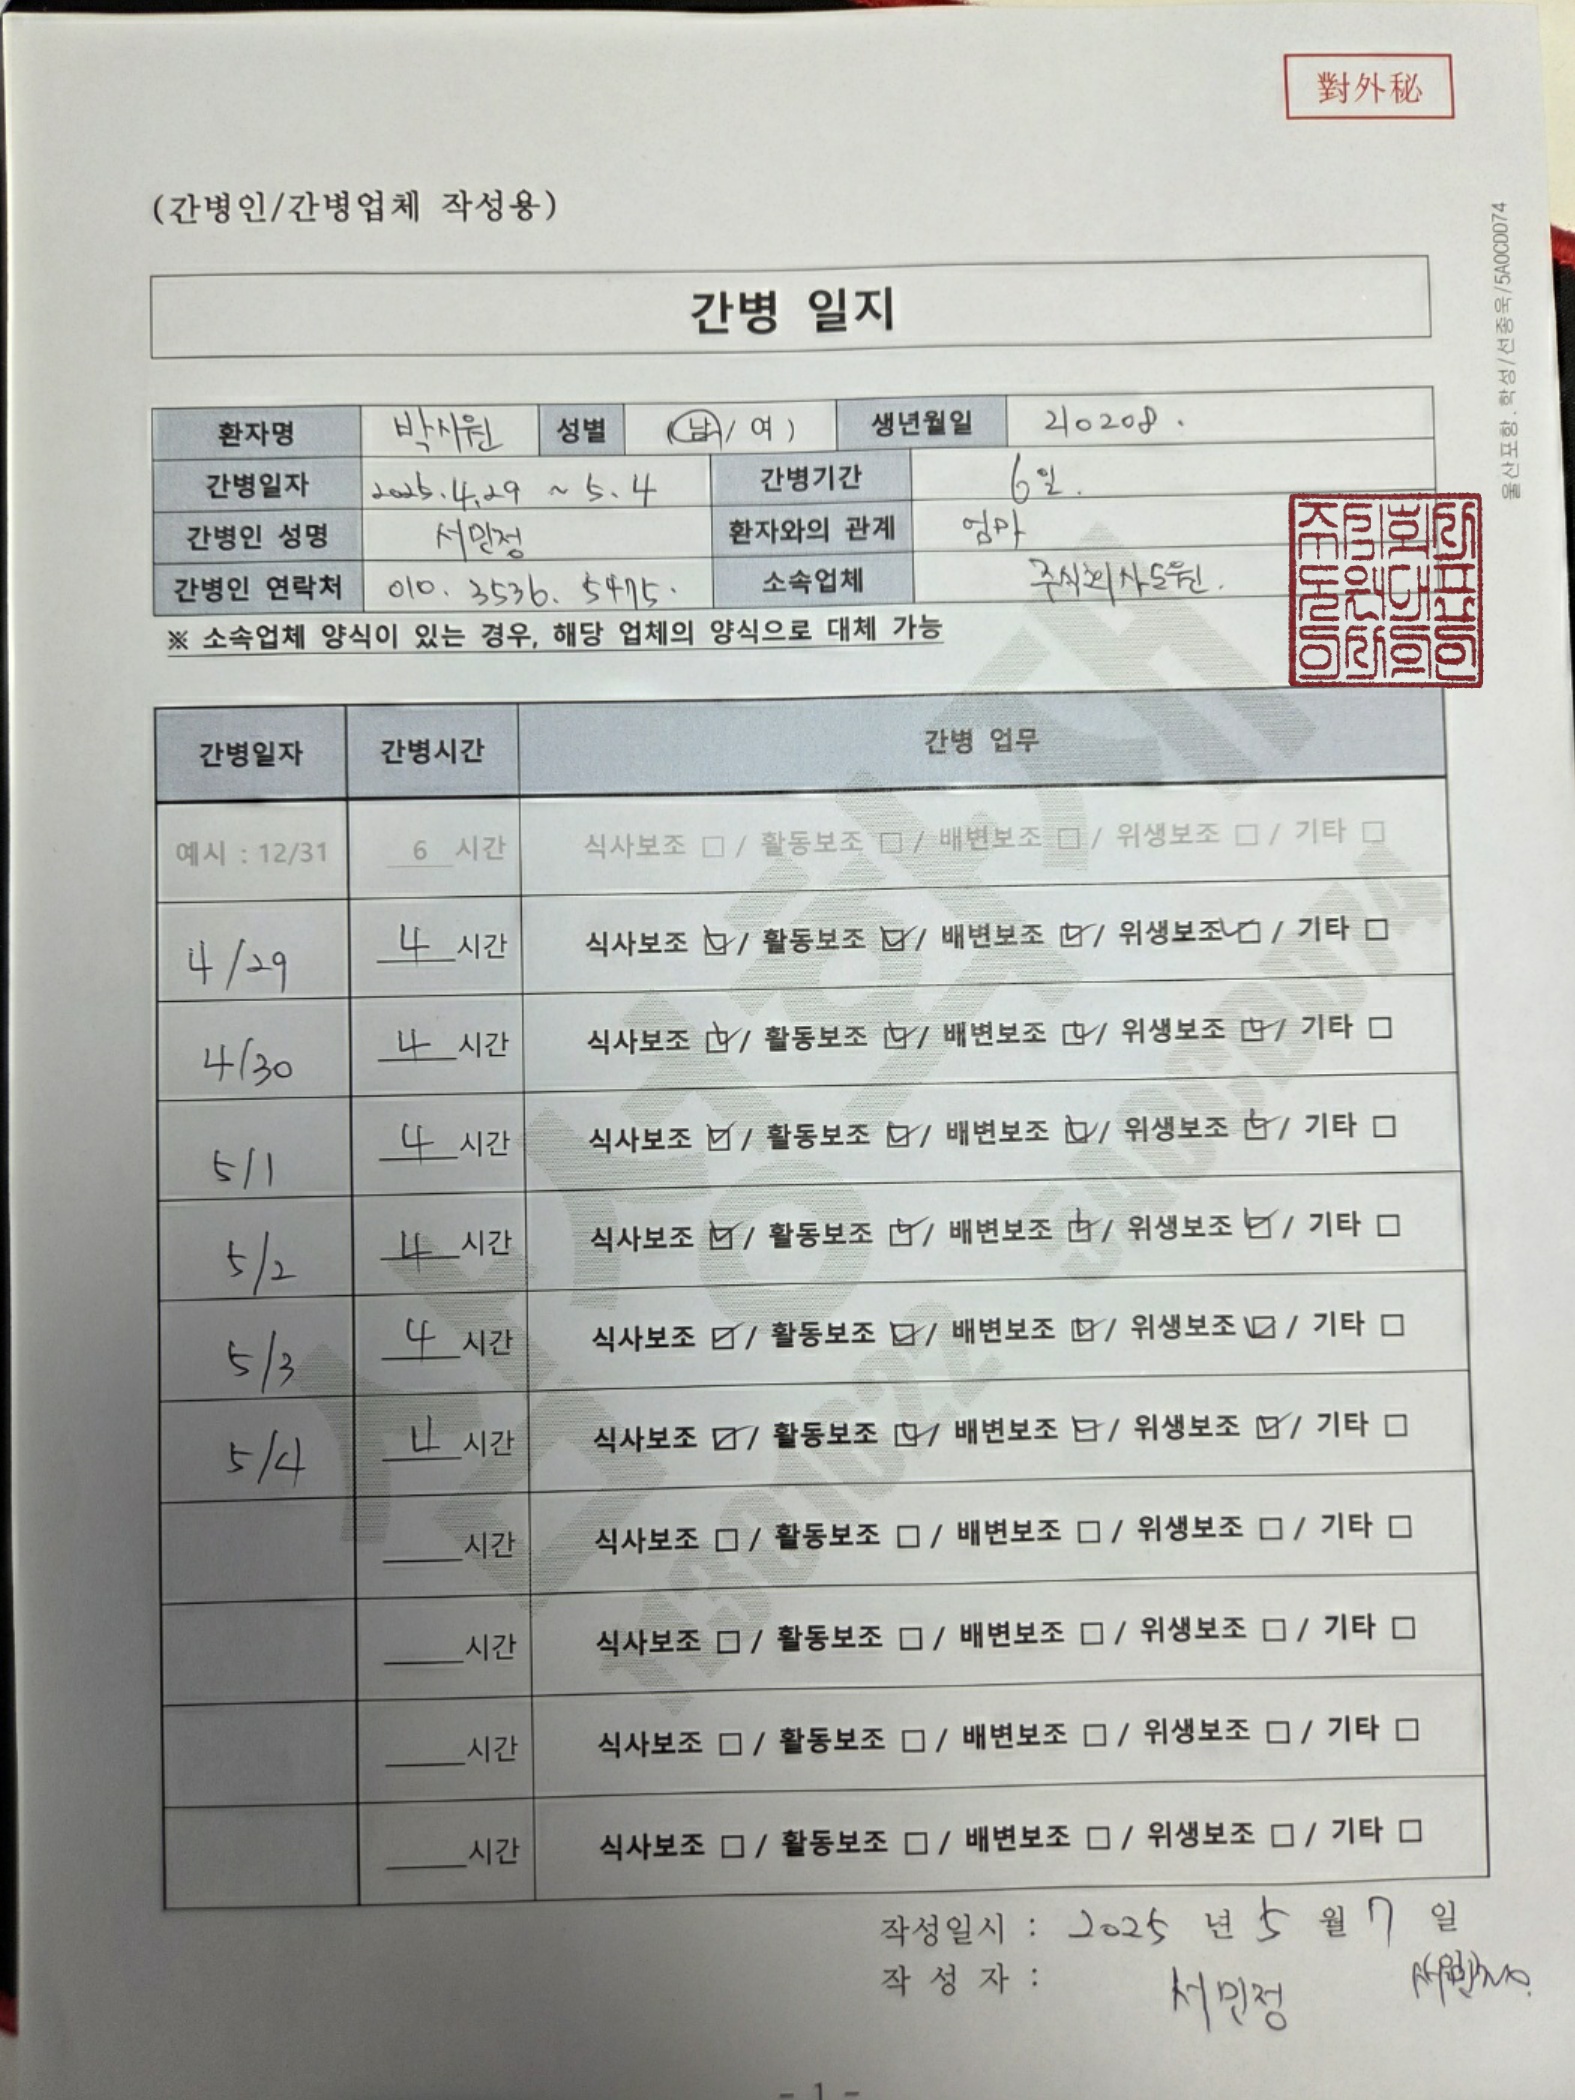 對外秘
(간병인/간병업체 작성용)
울산포항.학성/선종욱/5A0CDD74
간병 일지
환자명 박시원 성별 (남/ 여 ) 생년월일 210208.
간병일자 2025.4.29 ~ 5.4 간병기간 6일.
간병인 성명 서민정 환자와의 관계 엄마
간병인 연락처 010. 3536. 5475. 소속업체 주식회사도원.
※ 소속업체 양식이 있는 경우, 해당 업체의 양식으로 대체 가능
간병일자 간병시간 간병 업무
예시 : 12/31 6 시간 식사보조 □ / 활동보조 □ / 배변보조 □ / 위생보조 □ / 기타 □
4/29 4 시간 식사보조 ☑ / 활동보조 ☑ / 배변보조 ☑ / 위생보조 ☑ / 기타 □
4/30 4 시간 식사보조 ☑ / 활동보조 ☑ / 배변보조 ☑ / 위생보조 ☑ / 기타 □
5/1 4 시간 식사보조 ☑ / 활동보조 ☑ / 배변보조 ☑ / 위생보조 ☑ / 기타 □
5/2 4 시간 식사보조 ☑ / 활동보조 ☑ / 배변보조 ☑ / 위생보조 ☑ / 기타 □
5/3 4 시간 식사보조 ☑ / 활동보조 ☑ / 배변보조 ☑ / 위생보조 ☑ / 기타 □
5/4 4 시간 식사보조 ☑ / 활동보조 ☑ / 배변보조 ☑ / 위생보조 ☑ / 기타 □
시간 식사보조 □ / 활동보조 □ / 배변보조 □ / 위생보조 □ / 기타 □
시간 식사보조 □ / 활동보조 □ / 배변보조 □ / 위생보조 □ / 기타 □
시간 식사보조 □ / 활동보조 □ / 배변보조 □ / 위생보조 □ / 기타 □
시간 식사보조 □ / 활동보조 □ / 배변보조 □ / 위생보조 □ / 기타 □
삼성화재
작성일시 : 2025 년 5 월 7 일
작 성 자 : 서민정
- 1 -